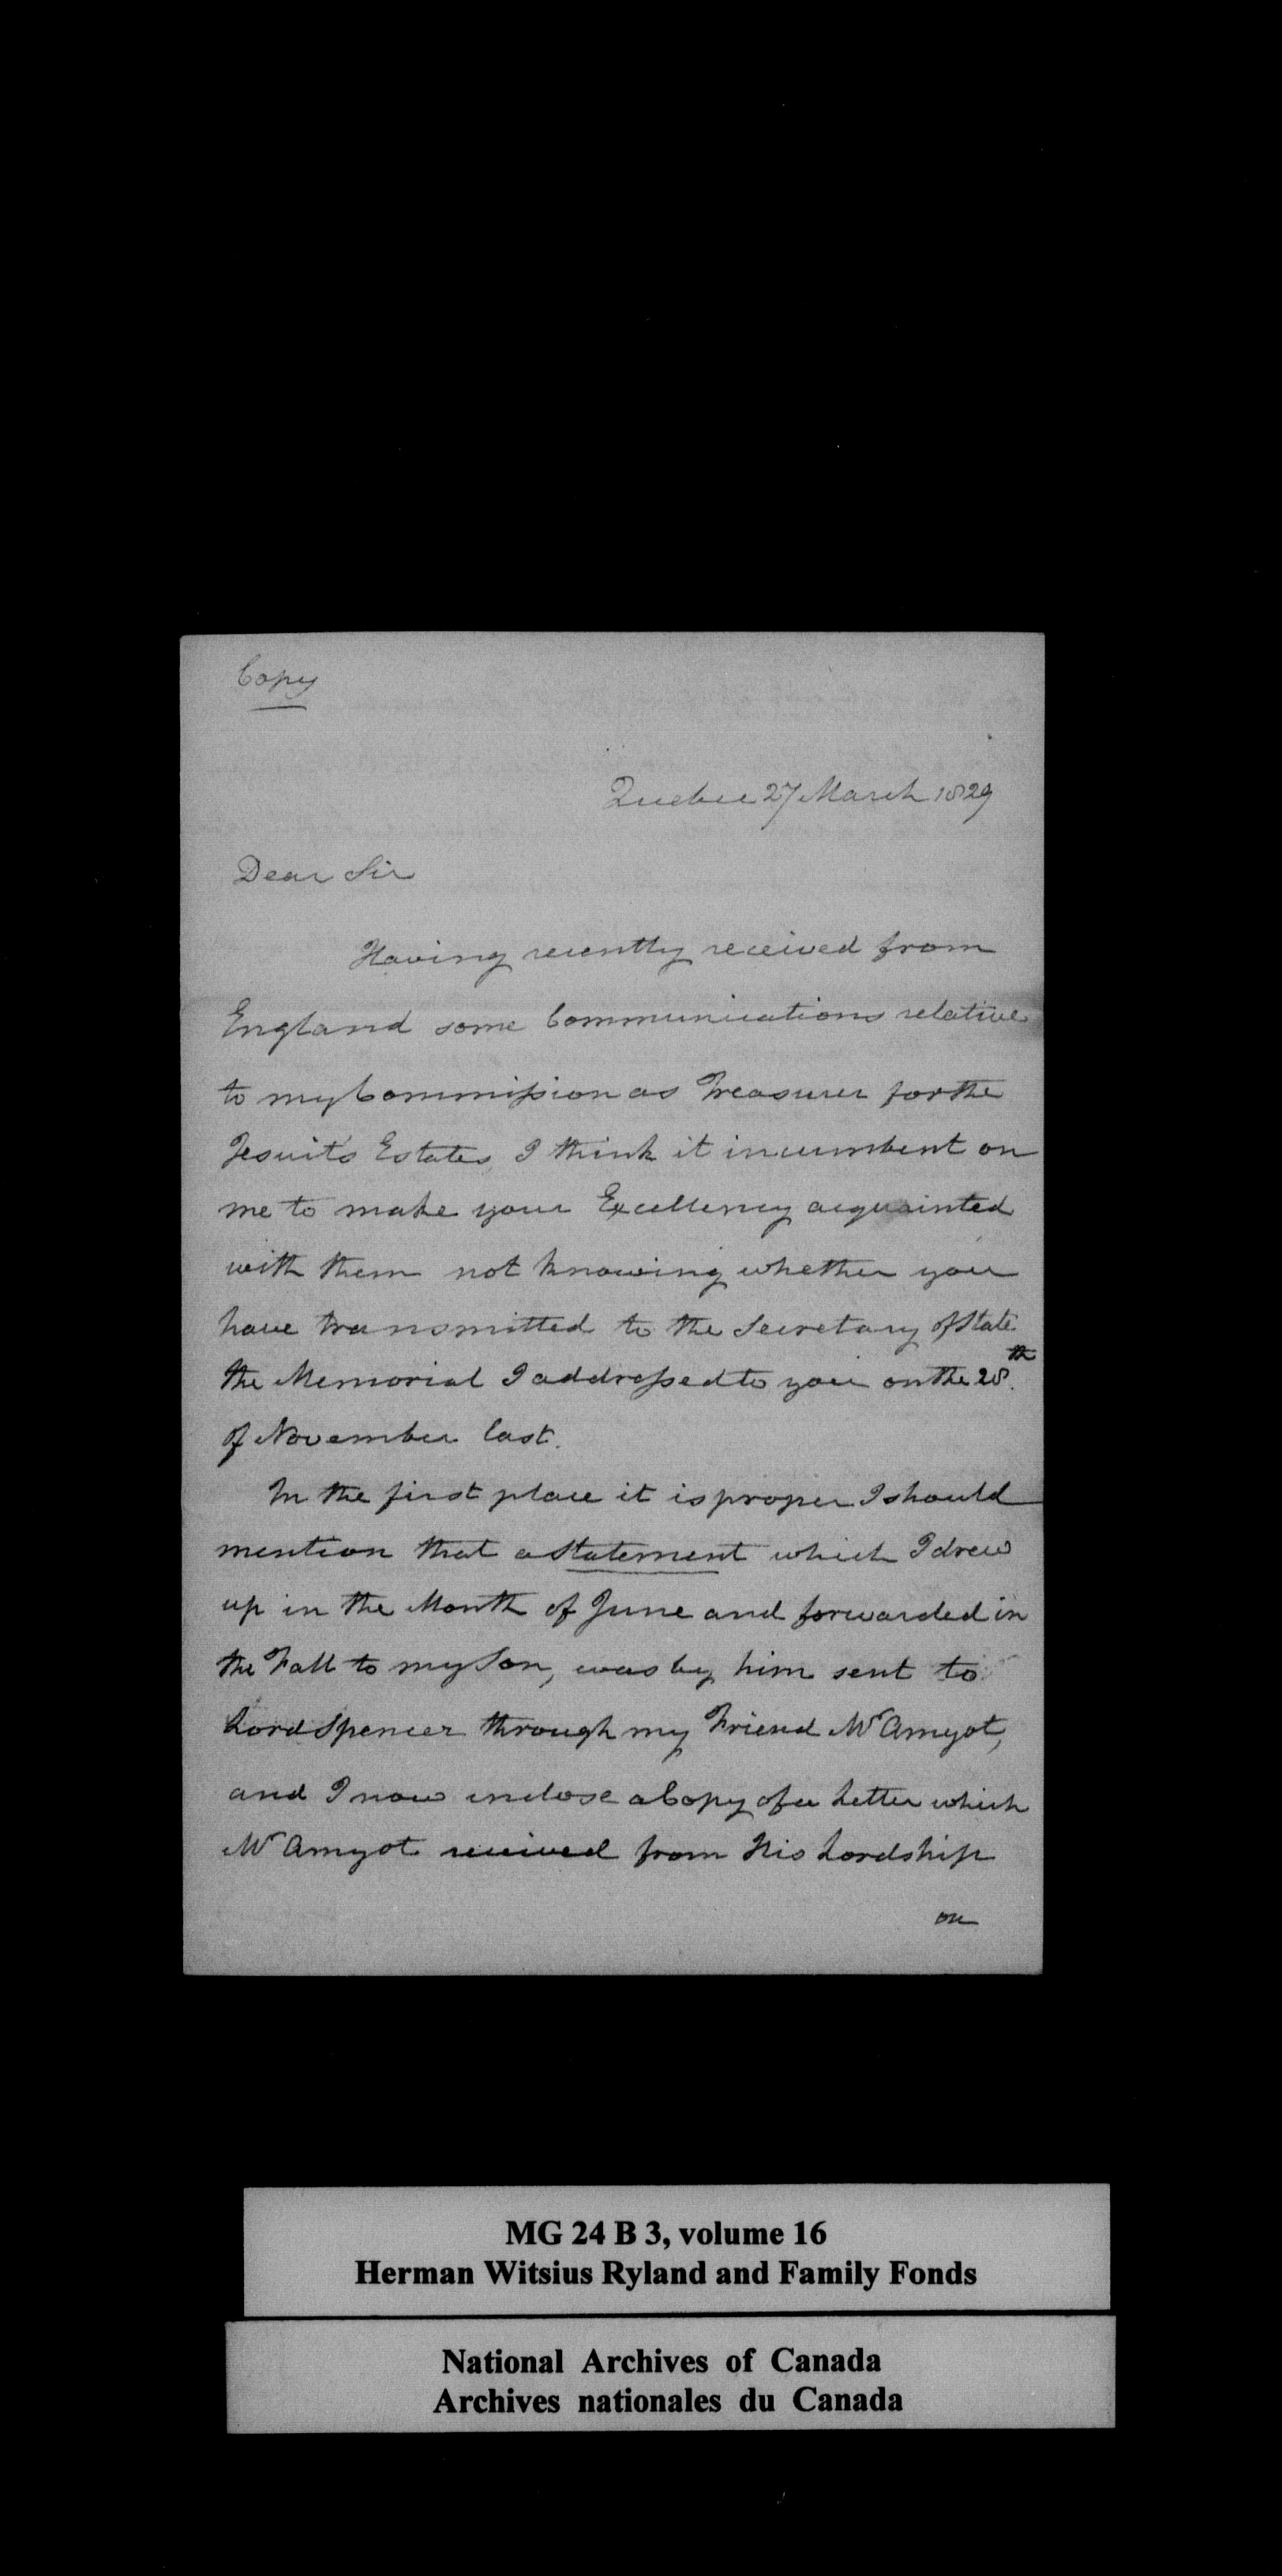 Copy
Quebec 27 March 1829
Dear Sir
Having recently received from
England some Communications relative
to my Commission as Treasurer for the
Jesuits Estates, I think it incumbent on
me to make your Excellency acquainted
with them not knowing whether you
have transmitted to the Secretary of State
the Memorial I addressed to you on the 28th.
of November last.
In the first place it is proper I should
mention that a Statement which I drew
up in the Month of June and forwarded in
the Fall to my Son, was by him sent to
Lord Spencer through my Friend Mr Amyot,
and I now inclose a Copy of a Letter which
Mr Amyot received from His Lordship
on
MG 24 B 3, volume 16
Herman Witsius Ryland and Family Fonds
National Archives of Canada
Archives nationales du Canada